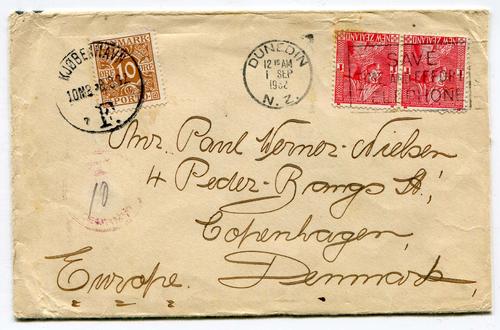 KJØBENHAVN
10
PORTO
DUNEDIN
12 15 AM
1 SEP
1932
N.Z.
NEW ZEALAND
NEW ZEALAND
SAVE
TELEPHONE
Mr. Paul Werner-Nielsen
4 Peder-Bangs St,
Copenhagen,
Europe. Denmark.
10